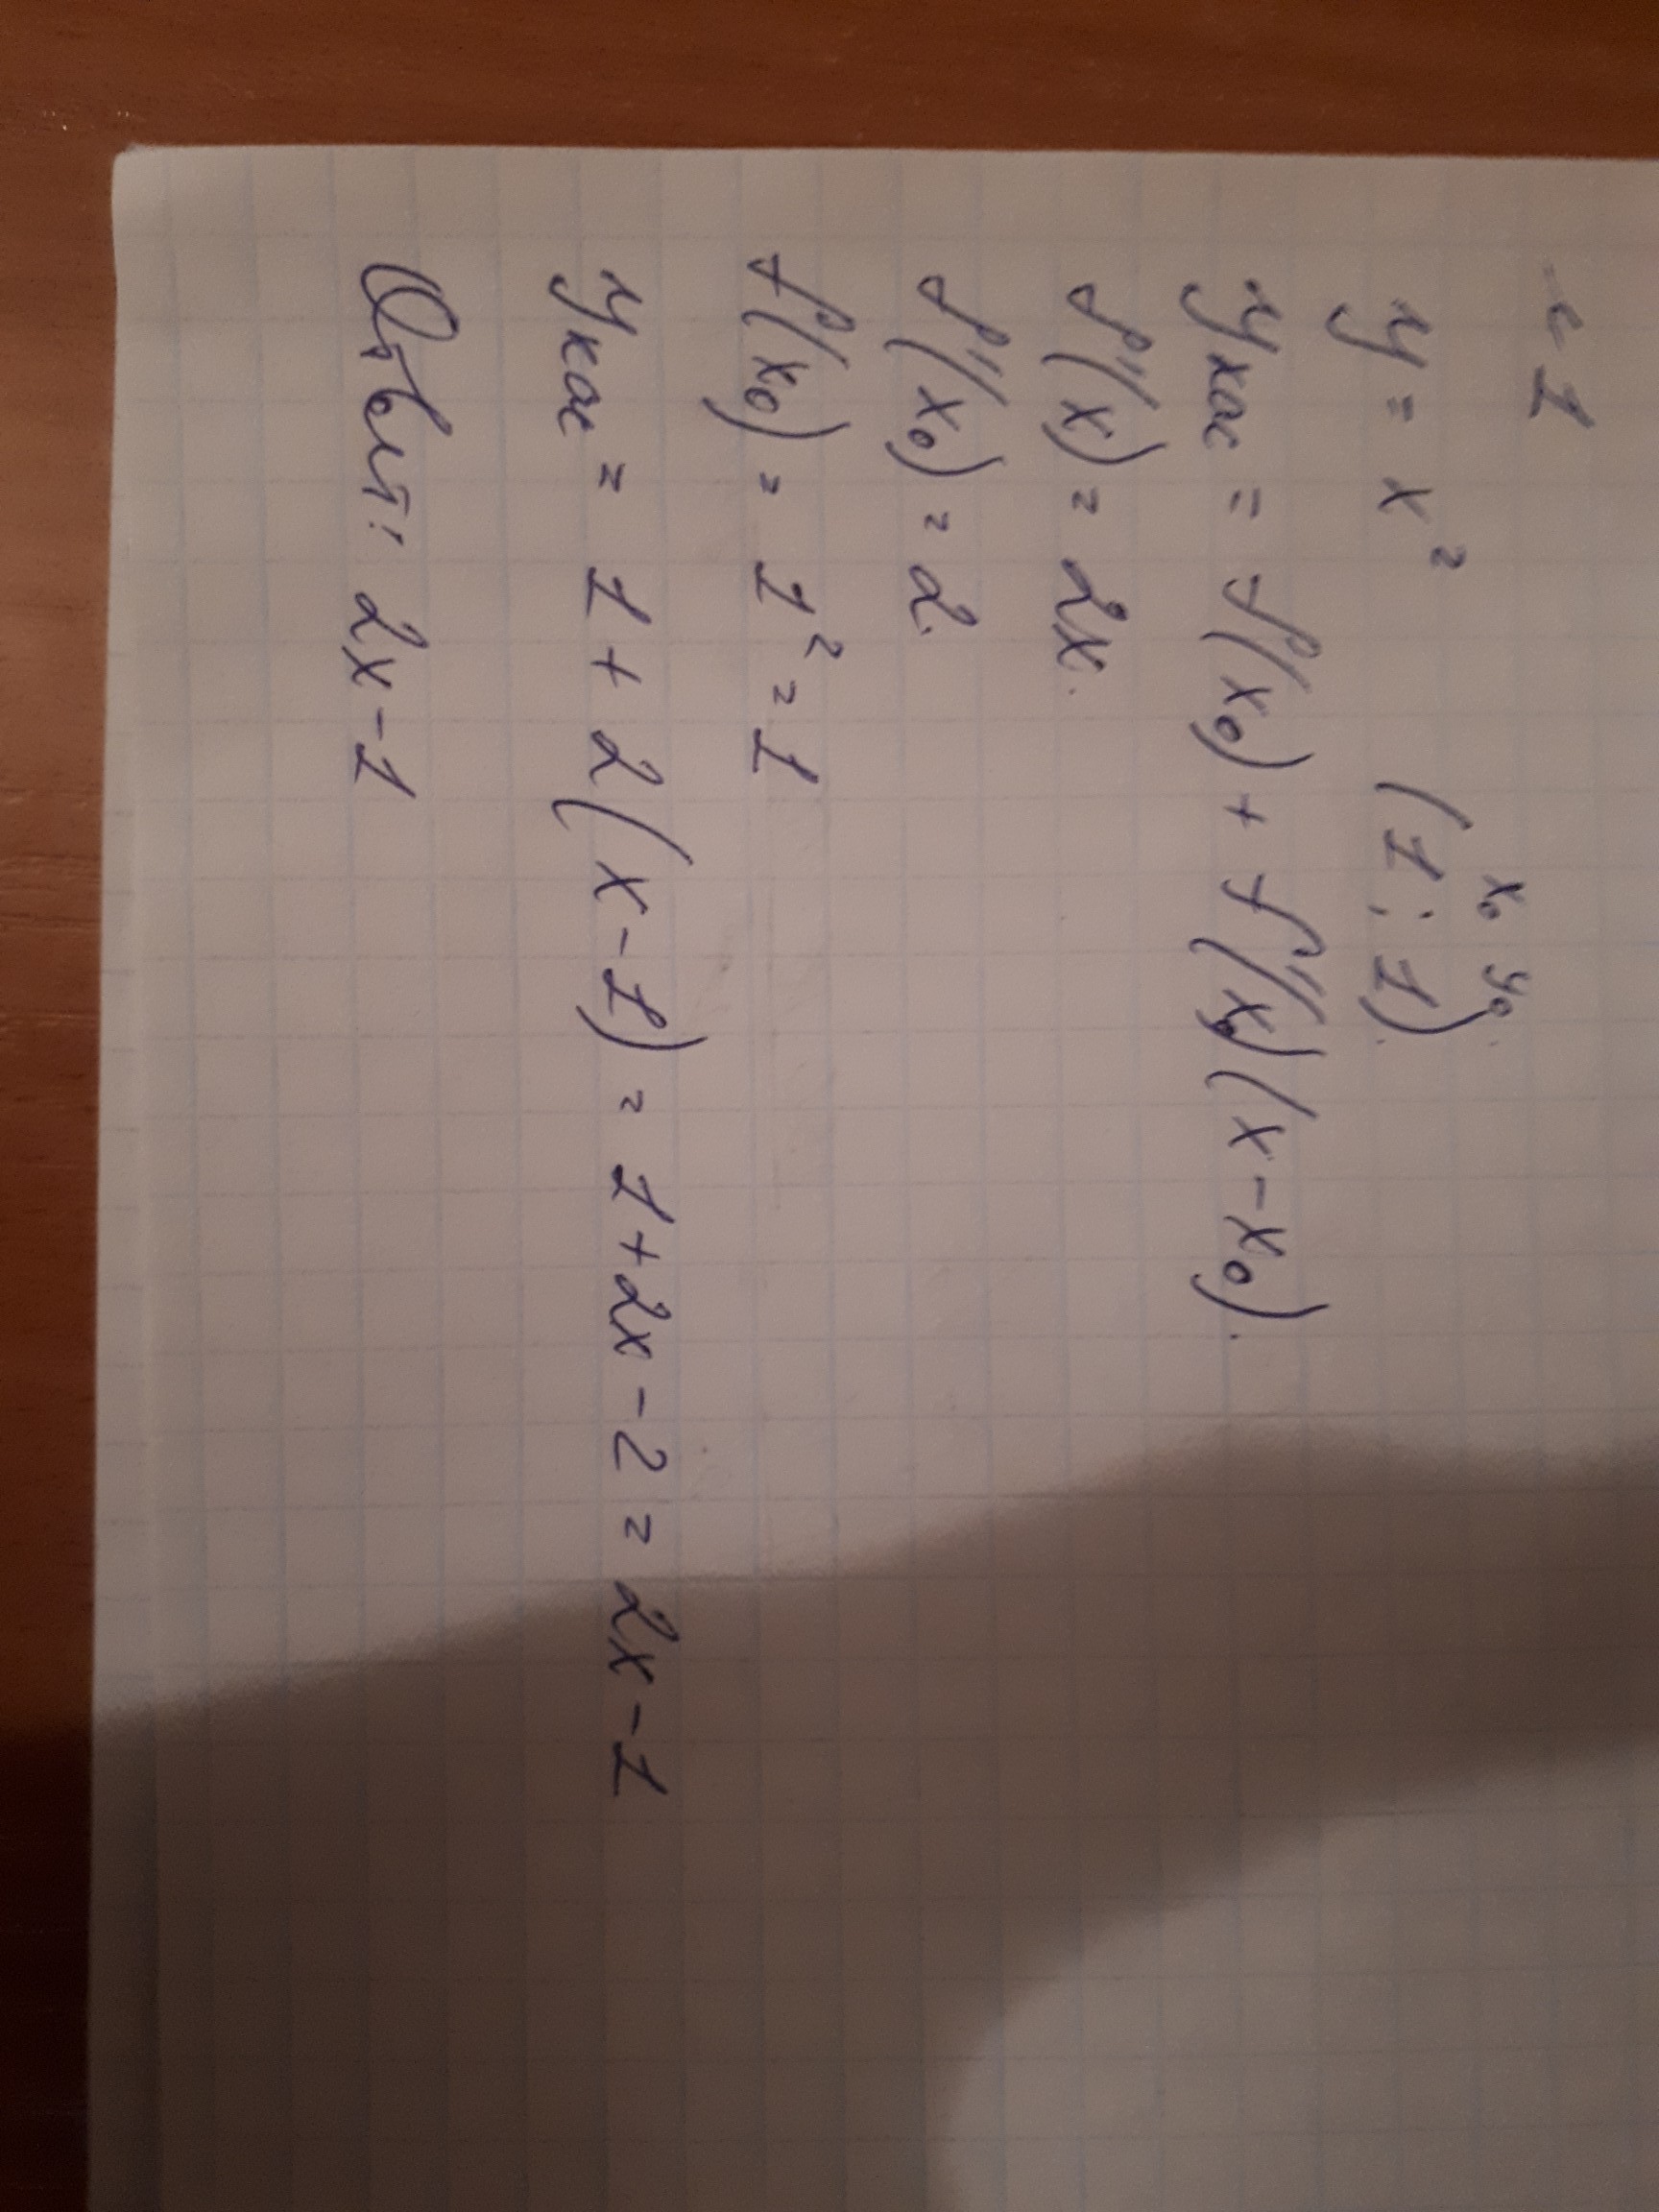 1
x₀ y₀
y = x² (1; 1)
yкас = f(x₀) + f'(x₀)(x - x₀).
f'(x) = 2x.
f'(x₀) = 2.
f(x₀) = 1² = 1
yкас = 1 + 2(x - 1) = 1 + 2x - 2 = 2x - 1
Ответ: 2x - 1